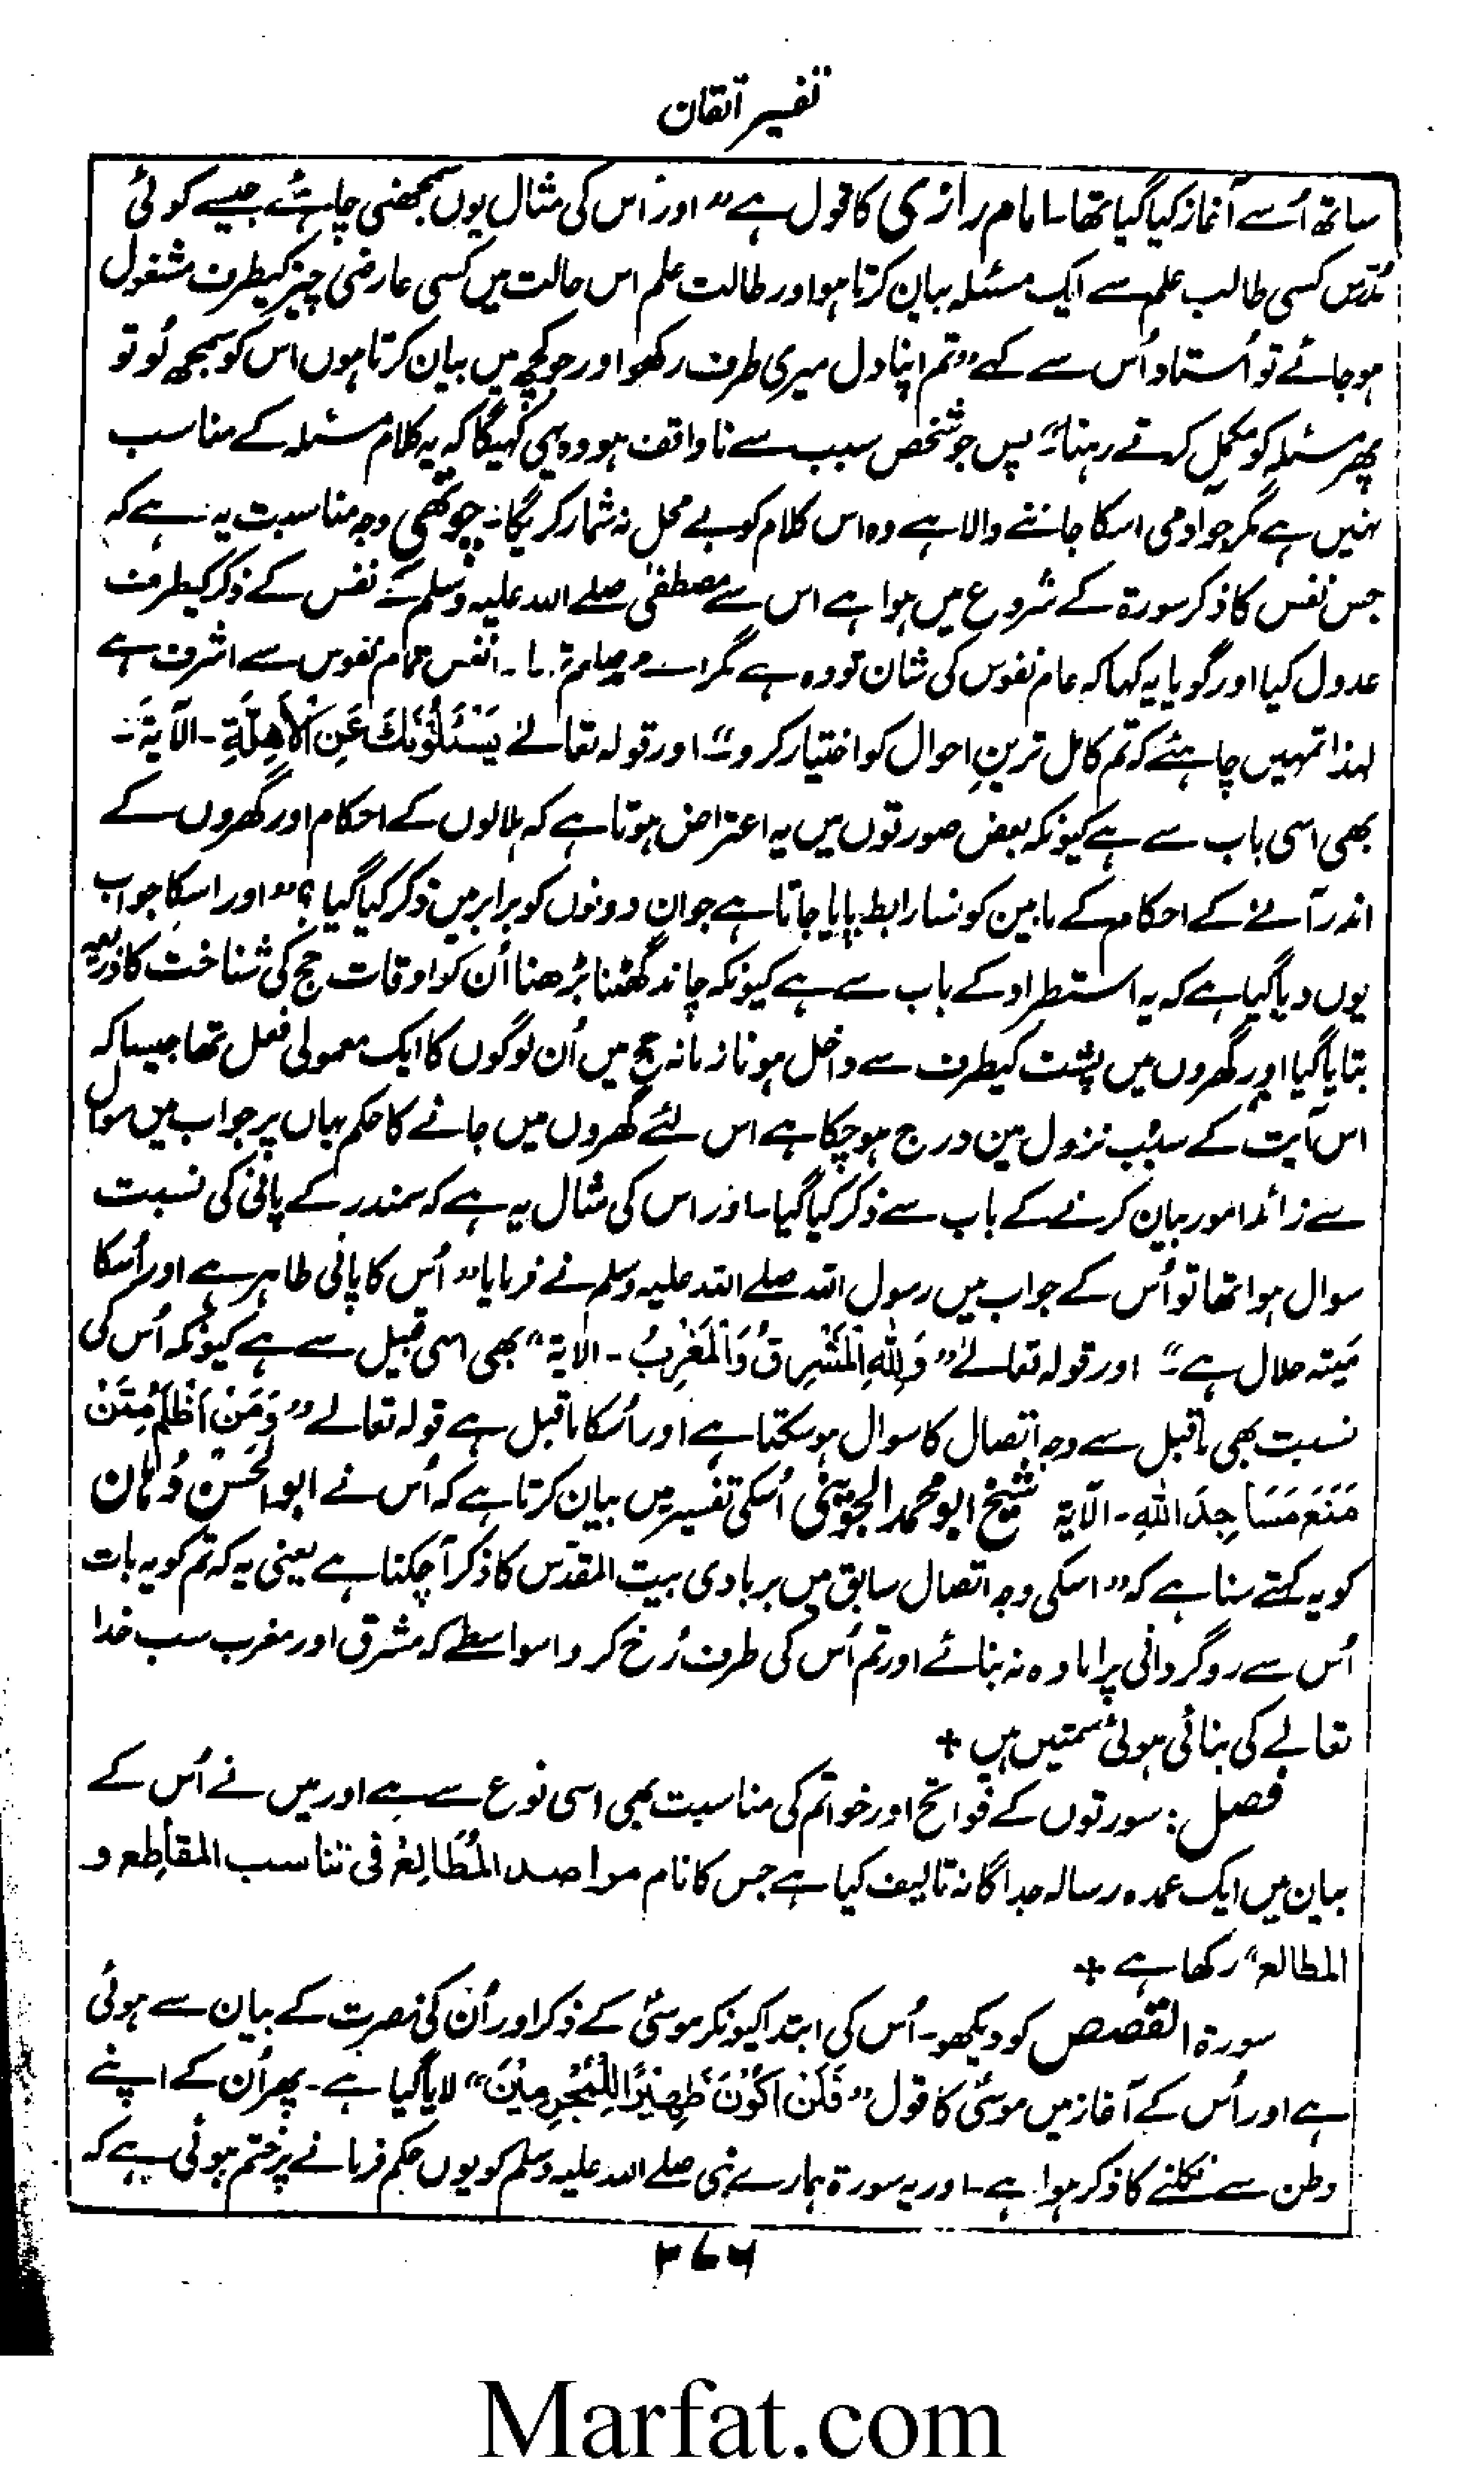 تفسیر اتقان
ساتھ اُسے آغاز کیا گیا تھا۔ امام رازی کا قول ہے ” اور اس کی مثال یوں سمجھنی چاہئے جیسے کوئی
مُدرّس کسی طالب علم سے ایک مسئلہ بیان کرتا ہو اور طالت علم اس حالت میں کسی عارضی چیز کیطرف مشغول
ہو جائے تو اُستاد اُس سے کہے ” تم اپنا دل میری طرف رکھو اور جو کچھ میں بیان کرتا ہوں اس کو سمجھ لو تو
پھر مسئلہ کو مکمل کہتے رہنا“۔ پس جو شخص سبب سے ناواقف ہو وہ یہی کہیگا کہ یہ کلام مسئلہ کے مناسب
نہیں ہے مگر جو آدمی اسکا جاننے والا ہے وہ اس کلام کو بے محل نہ شمار کریگا۔ چوتھی وجہ مناسبت یہ ہے کہ
جس نفس کا ذکر سورۃ کے شروع میں ہوا ہے اس سے مصطفیٰ صلے اللہ علیہ وسلم کے نفس کے ذکر کیطرف
عدول کیا اور گویا یہ کہا کہ عام نفوس کی شان تو وہ ہے مگر اے نفس تمام نفوس سے اشرف ہے
لہذا تمہیں چاہئے کہ تم کامل ترین احوال کو اختیار کرو“۔ اور قولہ تعالےٰ یَسْئَلُوْنَكَ عَنِ الْاَهِلَّةِ۔ الآیۃ۔
بھی اسی باب سے ہے کیونکہ بعض صورتوں میں یہ اعتراض ہوتا ہے کہ ہلالوں کے احکام اور گھروں کے
اندر آنے کے احکام کے مابین کونسا رابطہ پایا جاتا ہے جو ان دونوں کو برابر میں ذکر کیا گیا؟“ اور اسکا جواب
یوں دیا گیا ہے کہ یہ استطراد کے باب سے ہے کیونکہ چاند گھٹنا بڑھنا اُن کو اوقات حج کی شناخت کا ذریعہ
بتایا گیا اور گھروں میں پشت کیطرف سے داخل ہونا زمانہ حج میں اُن لوگوں کا ایک معمولی فعل تھا جیسا کہ
اس آیت کے سبب نزول مین درج ہو چکا ہے اس لئے گھروں میں جانے کا حکم یہاں پر جواب میں سوال
سے زائد امور بیان کرنے کے باب سے ذکر کیا گیا۔ اور اس کی مثال یہ ہے کہ سمندر کے پانی کی نسبت
سوال ہوا تھا تو اُس کے جواب میں رسول اللہ صلے اللہ علیہ وسلم نے فرمایا ” اُس کا پانی طاہر ہے اور اُسکا
مَیتہ حلال ہے“۔ اور قولہ تعالےٰ ” وَلِلّٰهِ الْمَشْرِقُ وَالْمَغْرِبُ۔ الآیۃ“ بھی اسی قبیل سے ہے کیونکہ اُس کی
نسبت بھی ماقبل سے وجہ اتصال کا سوال ہو سکتا ہے اور اُسکا ماقبل ہے قولہ تعالے ” وَمَنْ اَظْلَمُ مِمَّنْ
مَنَعَ مَسَاجِدَ اللّٰهِ۔ الآیۃ شیخ ابو محمد الجوینی اُسکی تفسیر میں بیان کرتا ہے کہ اُس نے ابو الحسن دُہان
کو یہ کہتے سنا ہے کہ ” اسکی وجہ اتصال سابق میں بربادی بیت المقدّس کا ذکر آ چکنا ہے یعنی یہ کہ تم کو یہ بات
اُس سے روگردانی پر امادہ نہ بنائے اور تم اُس کی طرف رُخ کرو اسواسطے کہ مشرق اور مغرب سب خدا
تعالے کی بنائی ہوئی سمتیں ہیں +
فصل: سورتوں کے فواتح اور خواتم کی مناسبت بھی اسی نوع سے ہے اور میں نے اُس کے
بیان میں ایک عمدہ رسالہ جداگانہ تالیف کیا ہے جس کا نام مراصد المُطَالِع فی تناسب المقاطِع و
المطالع“ رکھا ہے +
سورۃ القصص کو دیکھو۔ اُس کی ابتدا کیونکر موسیٰؑ کے ذکر اور اُن کی نصرت کے بیان سے ہوئی
ہے اور اُس کے آغاز میں موسیٰؑ کا قول ” فَلَنْ اَکُوْنَ ظَهِیْرًا لِّلْمُجْرِمِیْنَ“ لایا گیا ہے۔ پھر اُن کے اپنے
وطن سے نکلنے کا ذکر ہوا ہے۔ اور یہ سورۃ ہمارے نبی صلے اللہ علیہ وسلم کو یوں حکم فرمانے پر ختم ہوئی ہے کہ
۲۷۶
Marfat.com